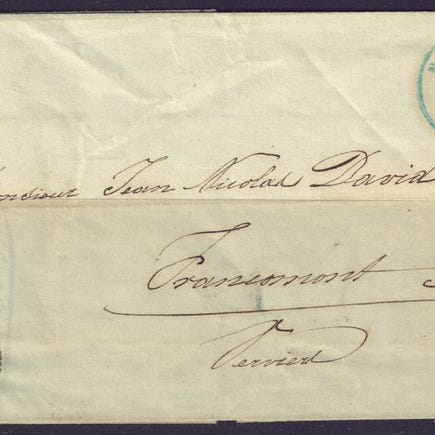 Monsieur Jean Nicolas David
Francomont
Verviers